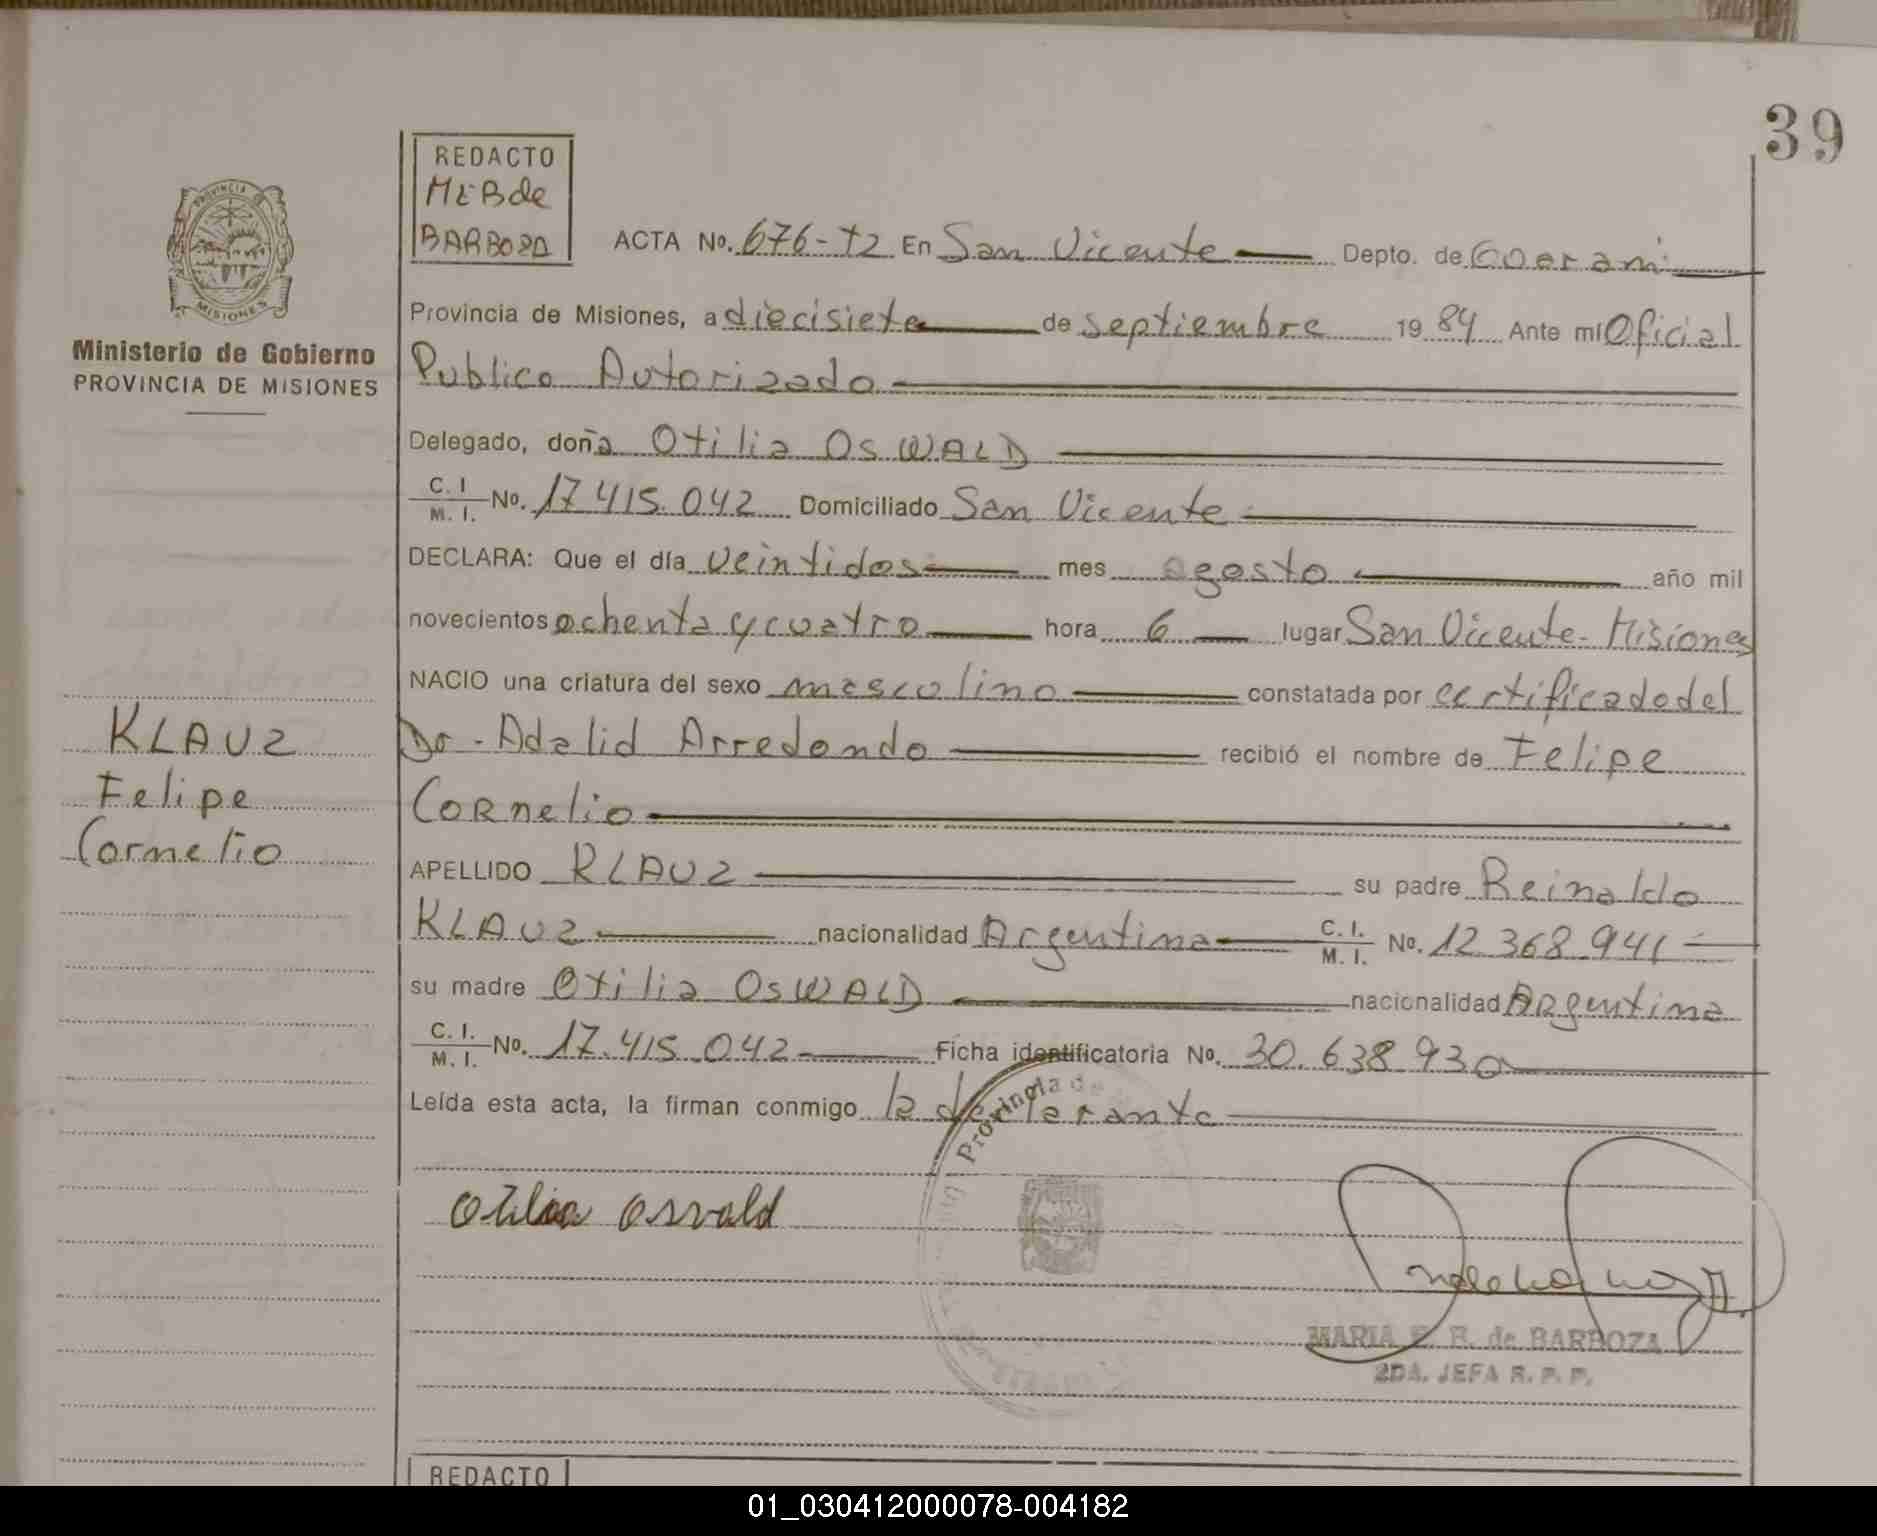 39
REDACTO
MEB de
BARBOZA
PROVINCIA DE
MISIONES
Ministerio de Gobierno
PROVINCIA DE MISIONES
KLAUZ
Felipe
Cornelio
ACTA No. 676-T2 En San Vicente Depto. de Goarani
Provincia de Misiones, a diecisiete de septiembre 1984 Ante mí Oficial
Publico Autorizado
Delegado, doña Otilia OSWALD
C. I. / M. I. No. 17.415.042 Domiciliado San Vicente
DECLARA: Que el día veintidos mes agosto año mil
novecientos ochenta y cuatro hora 6 lugar San Vicente-Misiones
NACIO una criatura del sexo masculino constatada por certificado del
Dr. Adalid Arredondo recibió el nombre de Felipe
Cornelio
APELLIDO KLAUZ su padre Reinaldo
KLAUZ nacionalidad Argentina C. I. / M. I. No. 12.368.941
su madre Otilia OSWALD nacionalidad Argentina
C. I. / M. I. No. 17.415.042 Ficha identificatoria No. 30.638.930
Leída esta acta, la firman conmigo la declarante
Provincia de
Otilia Osvald
MARIA E. B. de BARBOZA
2DA. JEFA R. P. P.
REDACTO
01_030412000078-004182